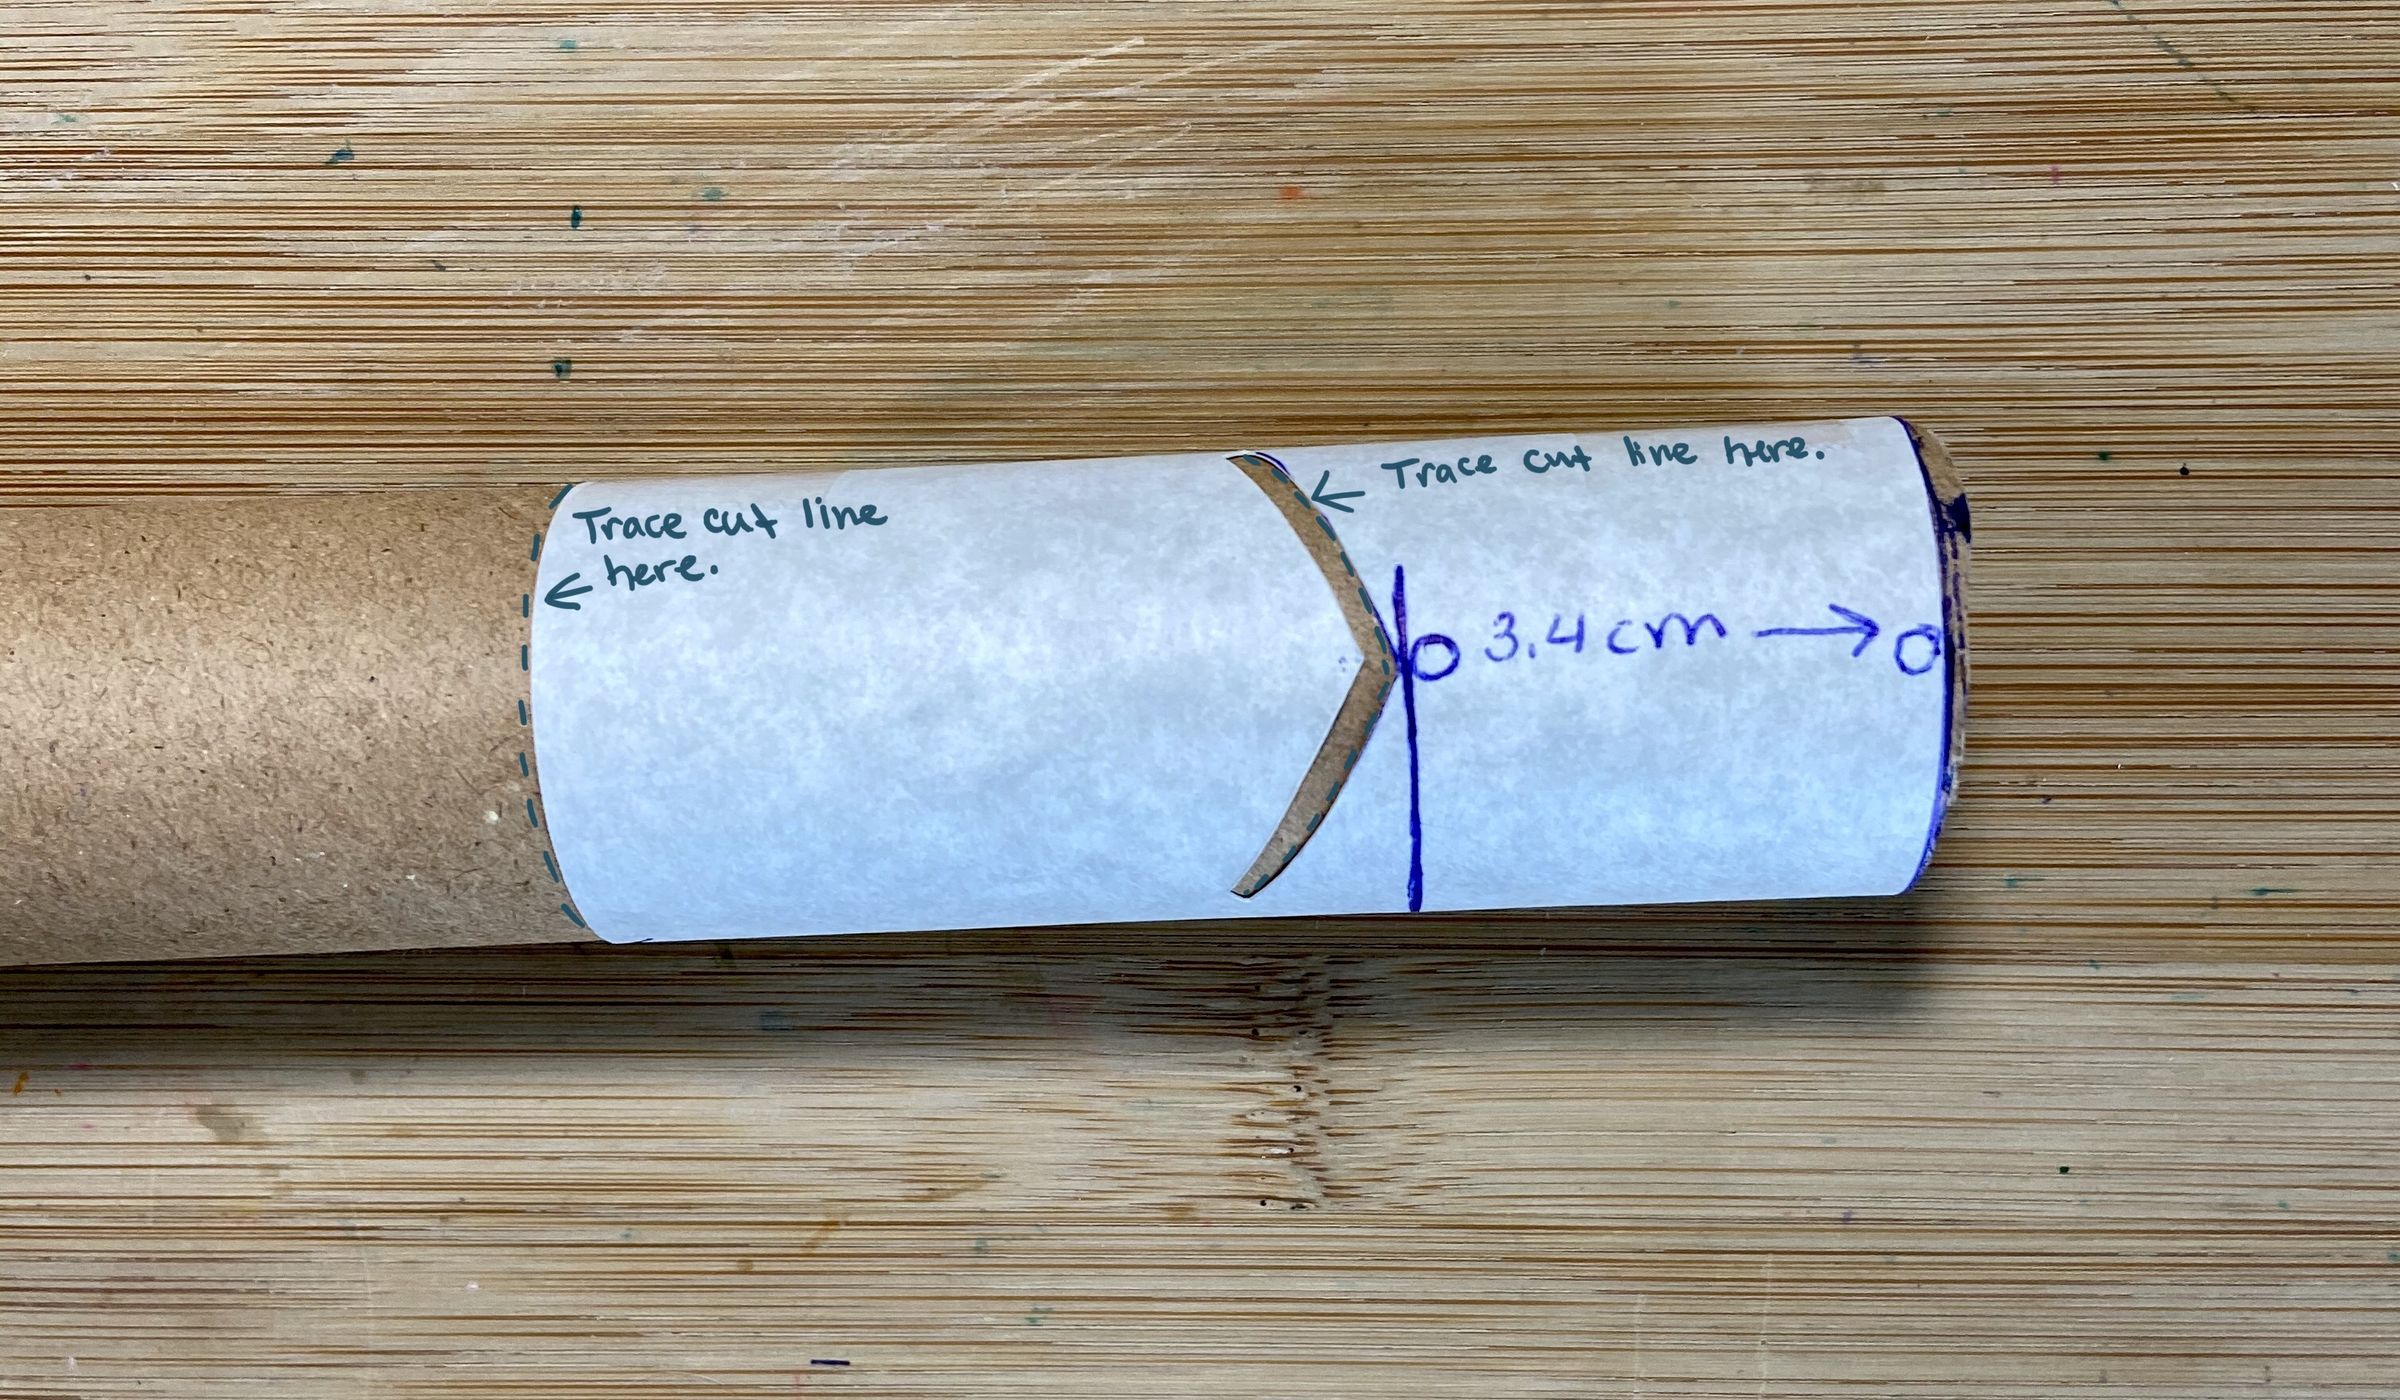 Trace cut line
here.
Trace cut line here.
O 3.4 cm → O